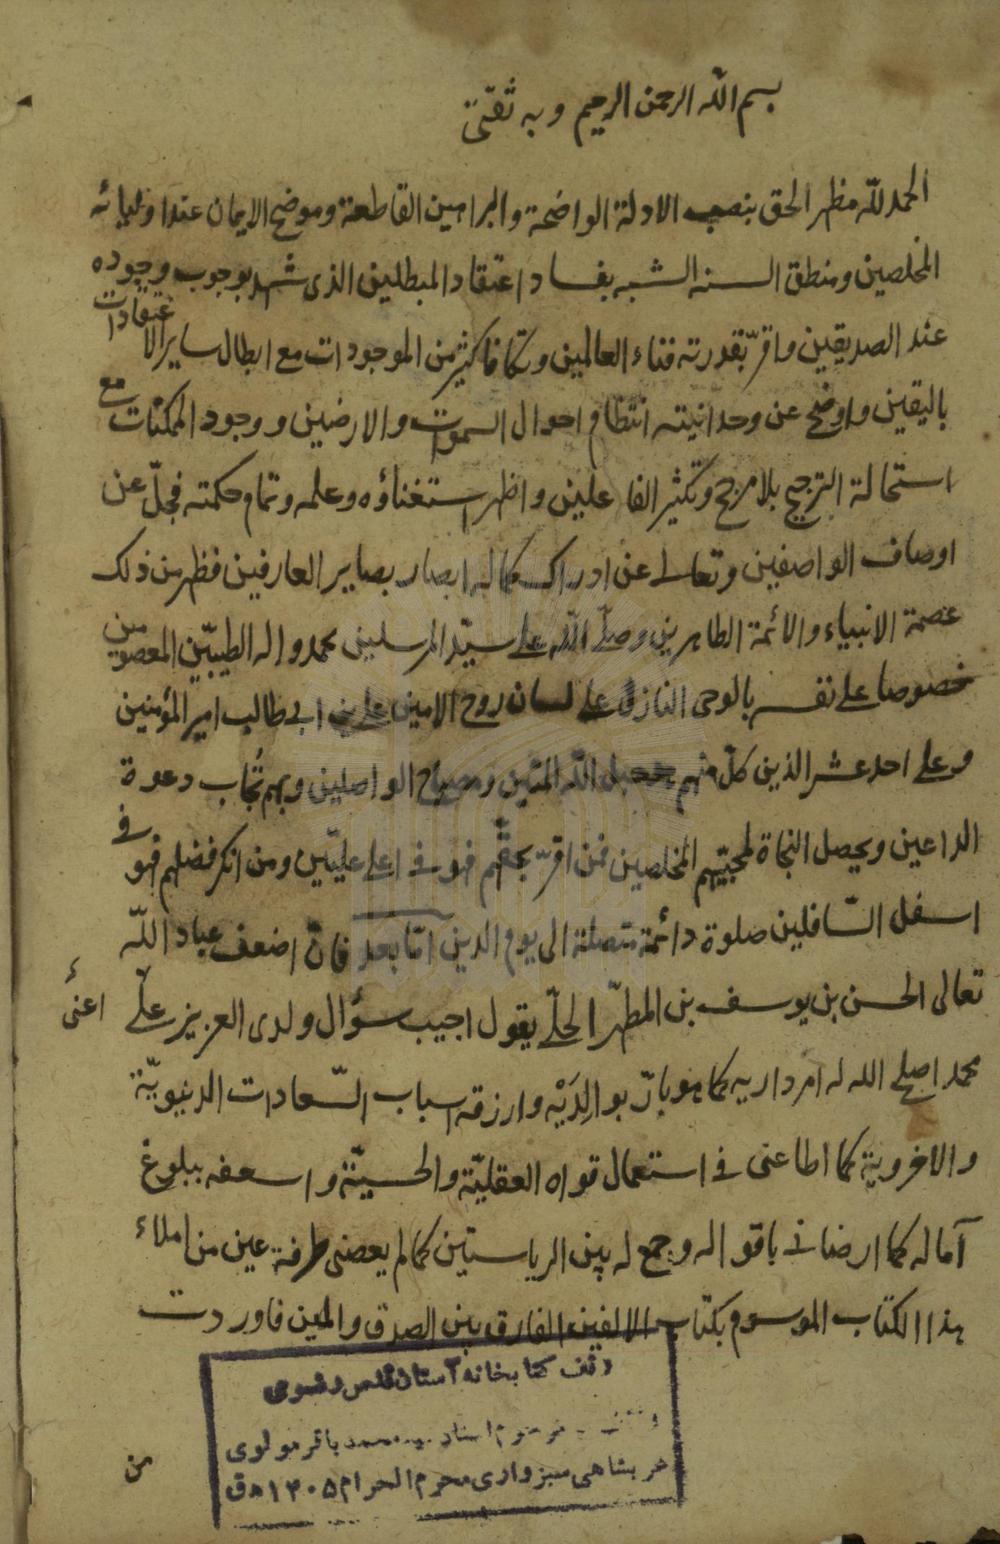 بسم الله الرحمن الرحيم وبه ثقتي
الحمد لله مظهر الحق بنصب الادلة الواضحة والبراهين القاطعة وموضح الايمان عند اوليائه
المخلصين ومنطق السنه الشبه بفساد اعتقاد المبطلين الذى شهد بوجوب وجوده
عند الصديقين واقرّ بقدرته فناء العالمين وتكافا كثير من الموجودات مع ابطال ساير الاعتقادات
باليقين واوضح عن وحدانيته انتظام احوال السموات والارضين ووجود الممكنات مع
استحالة الترجيح بلا مرجح وتكثير الفاعلين واظهر استغناؤه وعلمه وتمام حكمته فجلّ عن
اوصاف الواصفين وتعالى عن ادراك كماله ابصار بصاير العارفين فظهر من ذلك
عصمة الانبياء والائمة الطاهرين وصلّى اللّه على سيّد المرسلين محمد واله الطيبّين المعصومين
خصوصا على نفسه بالوحى النازل على لسان روح الامين على بن ابى طالب امير المؤمنين
وعلى احد عشر الذين كلّ منهم حبل اللّه المتين ومصباح الواصلين وبهم تُجاب دعوة
الداعين ويحصل النجاة لمحبّيهم المخلصين فمن اقرّ بحقّهم فهو فى اعلى عليّين ومن انكر فضلهم فهو فى
اسفل السّافلين صلوة دائمة متصلة الى يوم الدين امّا بعد فانّ اضعف عباد اللّه
تعالى الحسن بن يوسف بن المطهّر الحلّى يقول اجيب سؤال ولدى العزيز علىّ اعنى
محمد اصلح الله له امر داريه كما هو بارّ بوالِدَيْه وارزقه اسباب السّعادات الدنيويّة
والاخروية كما اطاعنى فى استعمال قواه العقليّة والحسيّة واسعفه ببلوغ
آماله كما ارضانى باقواله وجمع له بين الرياستين كما لم يعصنى طرفة عين من املاء
هذا الكتاب الموسوم بكتاب الالفين الفارق بين الصدق والمين فاوردت
من
وقف كتابخانه آستان قدس رضوى
مرحوم استاد سيد محمد باقر مولوى
عربشاهى سبزوارى محرم الحرام ۱۴۰۵ ه‍ ق